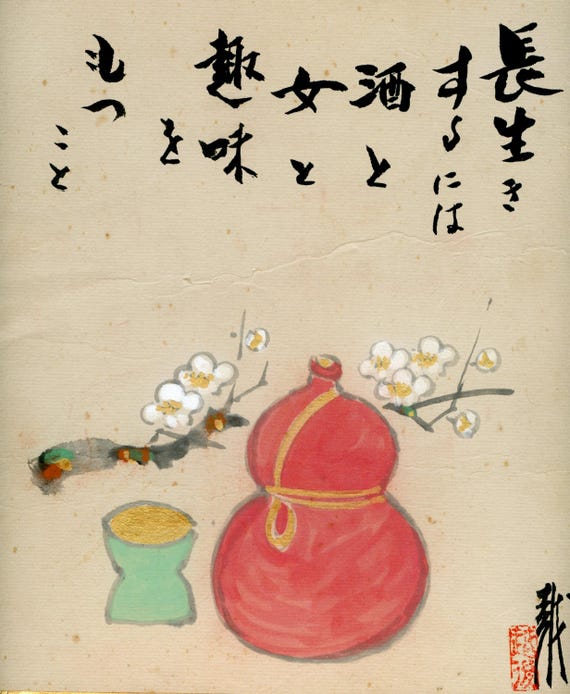 長生き
するには
酒と
女と
趣味
を
もつ
こと